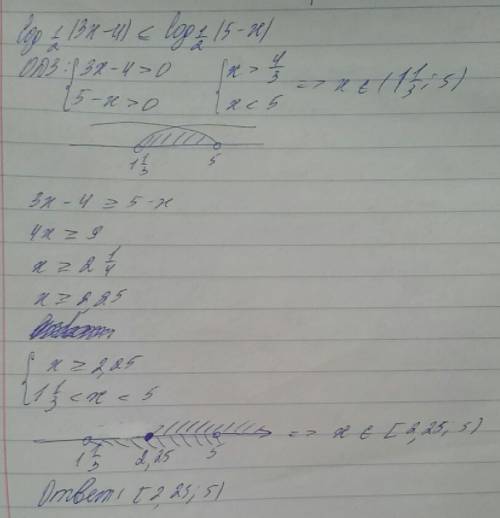 log 1/2 (3x-4) ≤ log 1/2 (5-x)
ОДЗ: { 3x-4>0 { x > 4/3 => x ∈ (1 1/3; 5)
5-x>0 x < 5
1 1/3 5
3x - 4 ≥ 5 - x
4x ≥ 9
x ≥ 2 1/4
x ≥ 2,25
{ x ≥ 2,25
1 1/3 < x < 5
1 1/3 2,25 5 => x ∈ [2,25; 5)
Ответ: [2,25; 5)